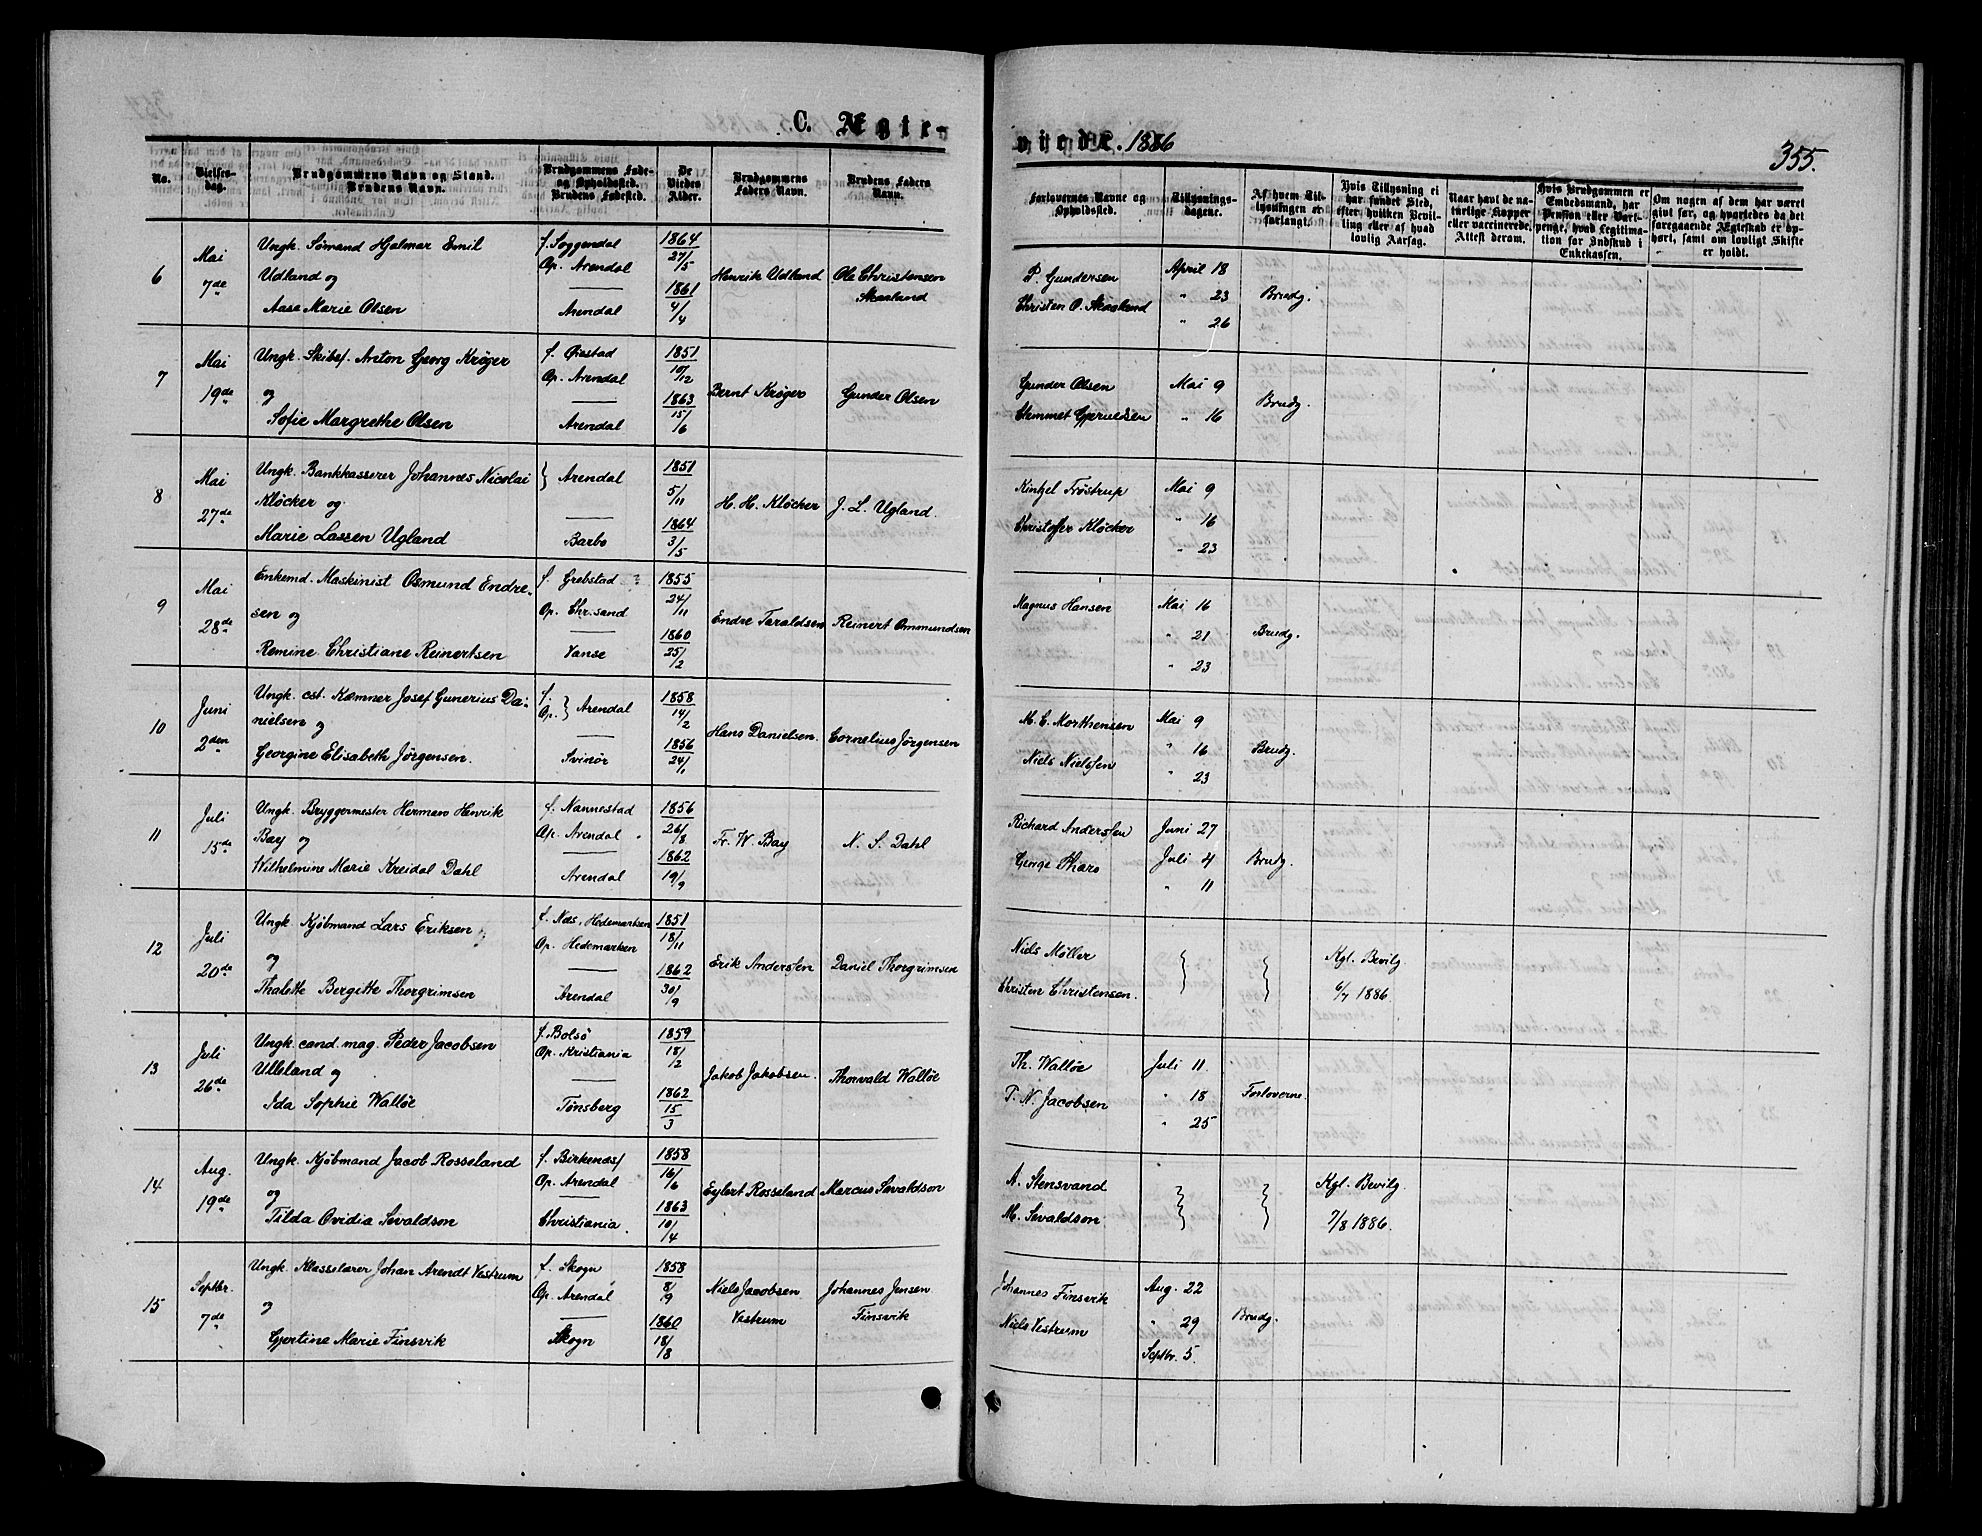 C. Ægte-
viede. 1886
355.
No.
Vielses-
dag.
Brudgommens Navn og Stand.
Brudens Navn.
Brudgommens Føde-
og Opholdssted.
Brudens Fødested.
De
Viedes
Alder.
Brudgommens
Faders Navn.
Brudens Faders
Navn.
Forlovernes Navne og
Opholdssted.
Tillysnings-
dagene.
Af hvem Til-
lysningen er
forlangt.
Hvis Tillysning ei
har fundet Sted,
efter hvilken Bevil-
ling eller af hvad
lovlig Aarsag.
Naar havt de na-
turlige Kopper
eller vaccinerede.
Attest derom.
Hvis Brudgommen er
Embedsmand, har
Pension eller Vart-
penge, hvad Legitima-
tion for Indskud i
Enkekassen.
Om nogen af dem har været
gift før, og hvorledes da det
foregaaende Ægteskab er op-
hørt, samt om lovligt Skifte
er holdt.
6
Mai
7de
Ungk. Sømand Hjalmar Emil
Udland og
Aase Marie Olsen
f. Soggendal
Op. Arendal
Arendal
1864
27/5
1861
4/4
Henrik Udland
Ole Christensen
Skaaland
P. Gundersen
Christen O. Skaaland
April 18
" 23
" 26
Brudg.
7
Mai
19de
Ungk. Skibsf. Anton Georg Krøger
og
Sofie Margrethe Olsen
f. Øiestad
Op. Arendal
Arendal
1851
10/12
1863
15/6
Bernt Krøger
Gunder Olsen
Gunder Olsen
Chemmet Gjeruldsen
Mai 9
" 16
Brudg.
8
Mai
27de
Ungk. Bankkasserer Johannes Nicolai
Kløcker og
Marie Lassen Ugland
} Arendal
Barbo
1851
5/11
1864
3/5
H. H. Kløcker
J. L. Ugland.
Kintzel Trøstrup
Christoffer Kløcker
Mai 9
" 16
" 23
9
Mai
28de
Enkemd. Maskinist Osmund Endre-
sen og
Remine Christiane Reinertsen
f. Grebstad ?
Op. Chr.sand
Vanse
1855
24/11
1860
25/2
Endre Taraldsen
Reinert Ommundsen
Magnus Hansen
Mai 16
" 21
" 23
Brudg.
10
Juni
2den
Ungk. cst. Kæmner Josef Gunerius Da-
nielsen og
Georgine Elisabeth Jørgensen.
f.
Op. } Arendal
Svinör
1858
14/2
1856
24/1
Hans Danielsen.
Cornelius Jørgensen
M. E. Morthensen
Niels Nielsen
Mai 9
" 16
" 23
Brudg.
11
Juli
15de
Ungk. Bryggermester Herman Henrik
Bay og
Wilhelmine Marie Kreidal Dahl
f. Nannestad
Op. Arendal
Arendal
1856
26/8
1862
19/9
Fr. W. Bay
N. S. Dahl
Richard Anderssen
George Thars
Juni 27
Juli 4
" 11
Brudg.
12
Juli
20de
Ungk. Kjøbmand Lars Eriksen
og
Thalette Bergitte Thorgrimsen
f. Næs, Hedemarken
Op. Hedemarken
Arendal
1851
18/11
1862
30/9
Erik Anderssen
Daniel Thorgrimsen
Niels Møller
Christen Christensen.
Kgl. Bevilg.
6/7 1886.
13
Juli
26de
Ungk. cand. mag. Peder Jacobsen
Ulleland og
Ida Sophie Walløe
f. Bolsö
Op. Kristiania
Tønsberg
1859
18/2
1862
15
3
Jakob Jakobsen.
Thorvald Walløe
Th. Walløe
P. N. Jacobsen
Juli 11.
" 18
" 25
Forloverne.
14
Aug.
19de
Ungk. Kjøbmand Jacob Rosseland
og
Tilda Ovidia Sevaldson
f. Birkenæs
Op. Arendal
Christiania.
1858
16/6
1863
10/4
Eylert Rosseland
Marcus Sevaldson
A. Stensvand
M. Sevaldson
Kgl. Bevilg.
7/8 1886.
15
Septbr.
7de
Ungk. Klasselærer Johan Arendt Vestrum
og
Gjertine Marie Finsvik
f. Skogn
Op. Arendal
Skogn
1858
8/9
1860
18/8
Niels Jacobsen
Vestrum
Johannes Jensen
Finsvik
Johannes Finsvik
Niels Vestrum
Aug. 22
" 29
Septbr. 5.
Brudg.